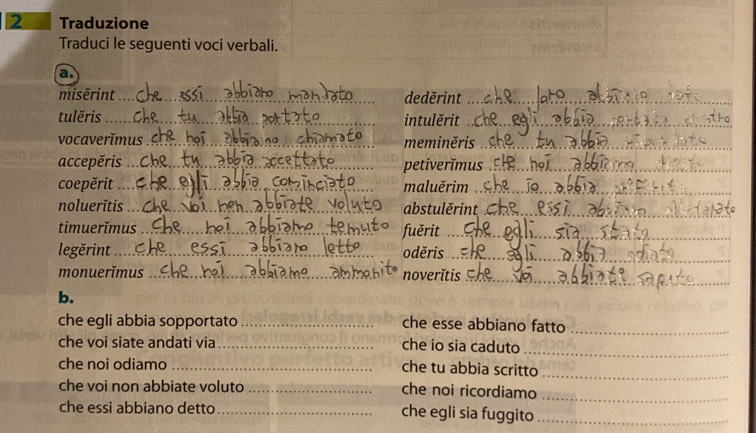 2 Traduzione
Traduci le seguenti voci verbali.
a.
misĕrint che essi abbiano mandato
tulĕris che tu abbia portato
vocaverĭmus che noi abbiamo chiamato
accepĕris che tu abbia accettato
coepĕrit che egli abbia cominciato
noluerĭtis che voi non abbiate voluto
timuerĭmus che noi abbiamo temuto
legĕrint che essi abbiano letto
monuerĭmus che noi abbiamo ammonito
dedĕrint che loro abbiano
intulĕrit che egli abbia
meminĕris che tu abbia
petiverĭmus che noi abbiamo
maluĕrim che io abbia
abstulĕrint che essi abbiano
fuĕrit che egli sia stato
odĕris che egli abbia odiato
noverĭtis che voi abbiate saputo
b.
che egli abbia sopportato
che voi siate andati via
che noi odiamo
che voi non abbiate voluto
che essi abbiano detto
che esse abbiano fatto
che io sia caduto
che tu abbia scritto
che noi ricordiamo
che egli sia fuggito